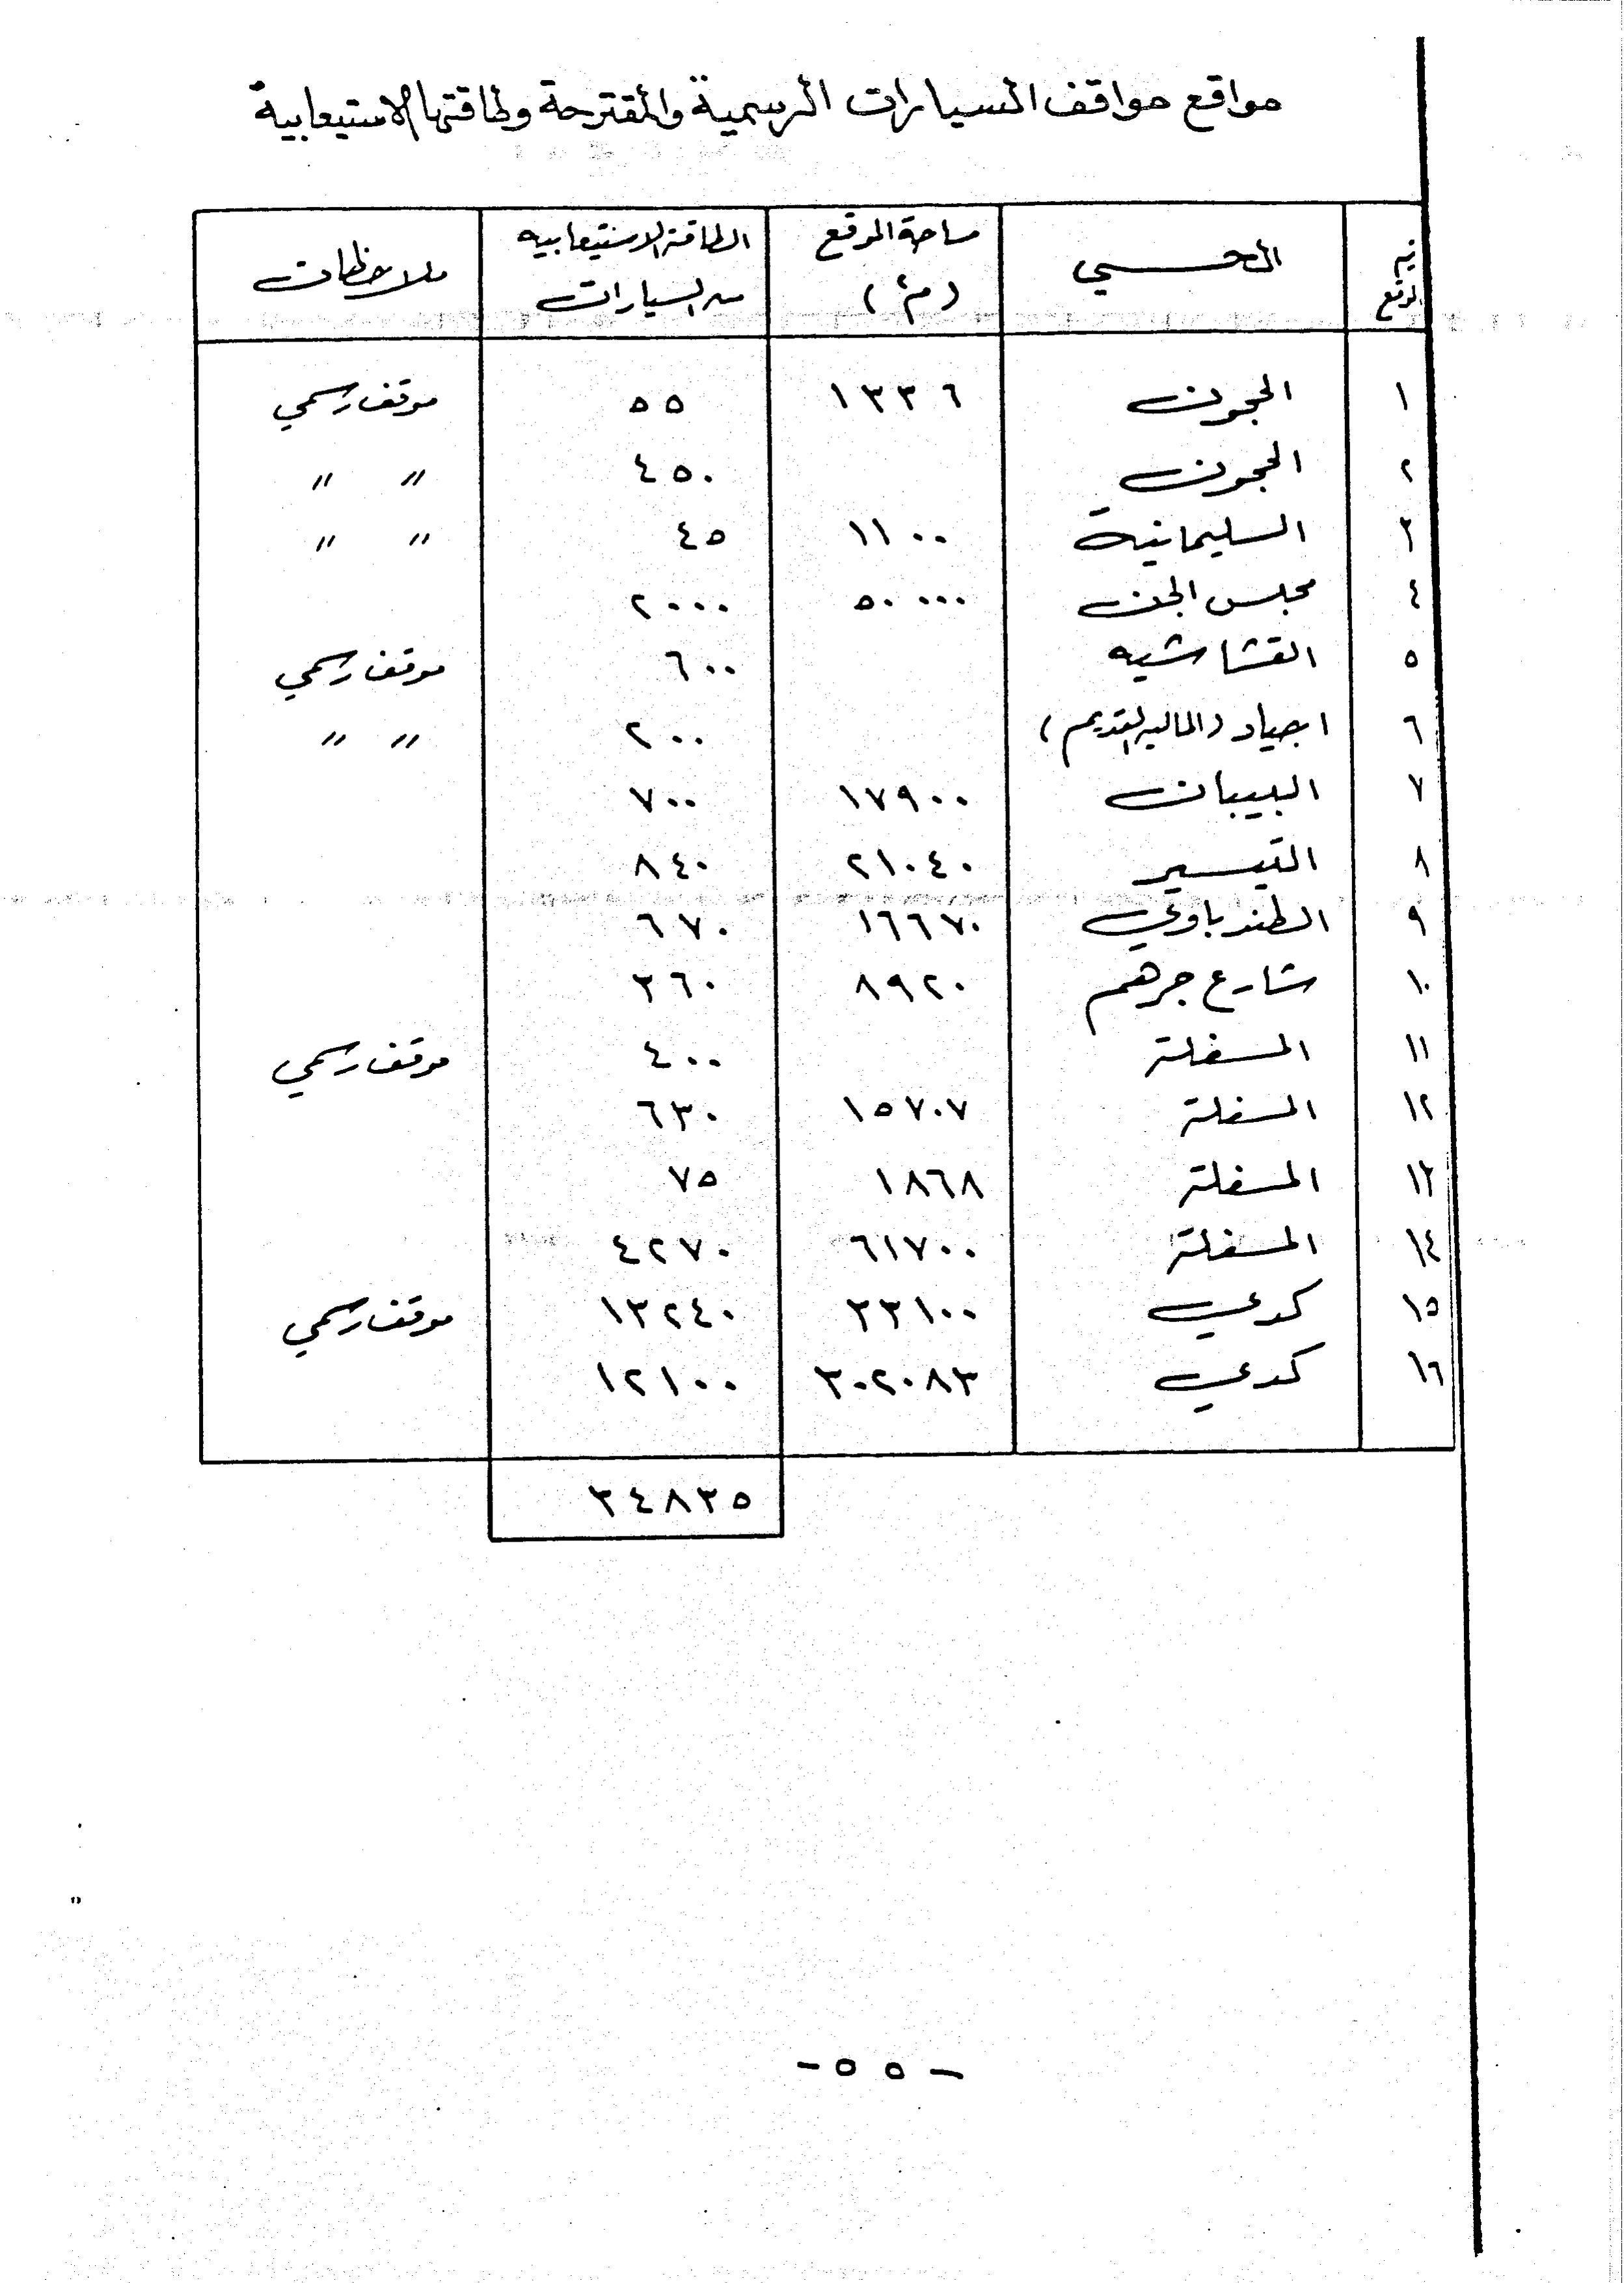 مواقع مواقف السيارات الرسمية والمقترحة وطاقتها الاستيعابية
رقم الموقع | الحي | مساحة الموقع (م٢) | الطاقة الاستيعابيه من السيارات | ملاحظات
١ | الحجون | ١٣٣٦ | ٥٥ | موقف رسمي
٢ | الحجون | | ٤٥٠ | " "
٣ | السليمانية | ١١٠٠ | ٤٥ | " "
٤ | مجلس الجن | ٥٠٠٠٠ | ٢٠٠٠ |
٥ | القشاشيه | | ٦٠٠ | موقف رسمي
٦ | اجياد (الماليه القديمه) | | ٢٠٠ | " "
٧ | البيبان | ١٧٩٠٠ | ٧٠٠ |
٨ | التيسير | ٢١٠٤٠ | ٨٤٠ |
٩ | الطندباوي | ١٦٦٧٠ | ٦٧٠ |
١٠ | شارع جرهم | ٨٩٢٠ | ٣٦٠ |
١١ | المسفلة | | ٤٠٠ | موقف رسمي
١٢ | المسفلة | ١٥٧٠٧ | ٦٣٠ |
١٣ | المسفلة | ١٨٦٨ | ٧٥ |
١٤ | المسفلة | ٦١٧٠٠ | ٤٢٧٠ |
١٥ | كدي | ٣٣١٠٠ | ١٣٢٤٠ | موقف رسمي
١٦ | كدي | ٣٠٢٠٨٣ | ١٢١٠٠ |
٣٤٨٣٥
-٥٥-